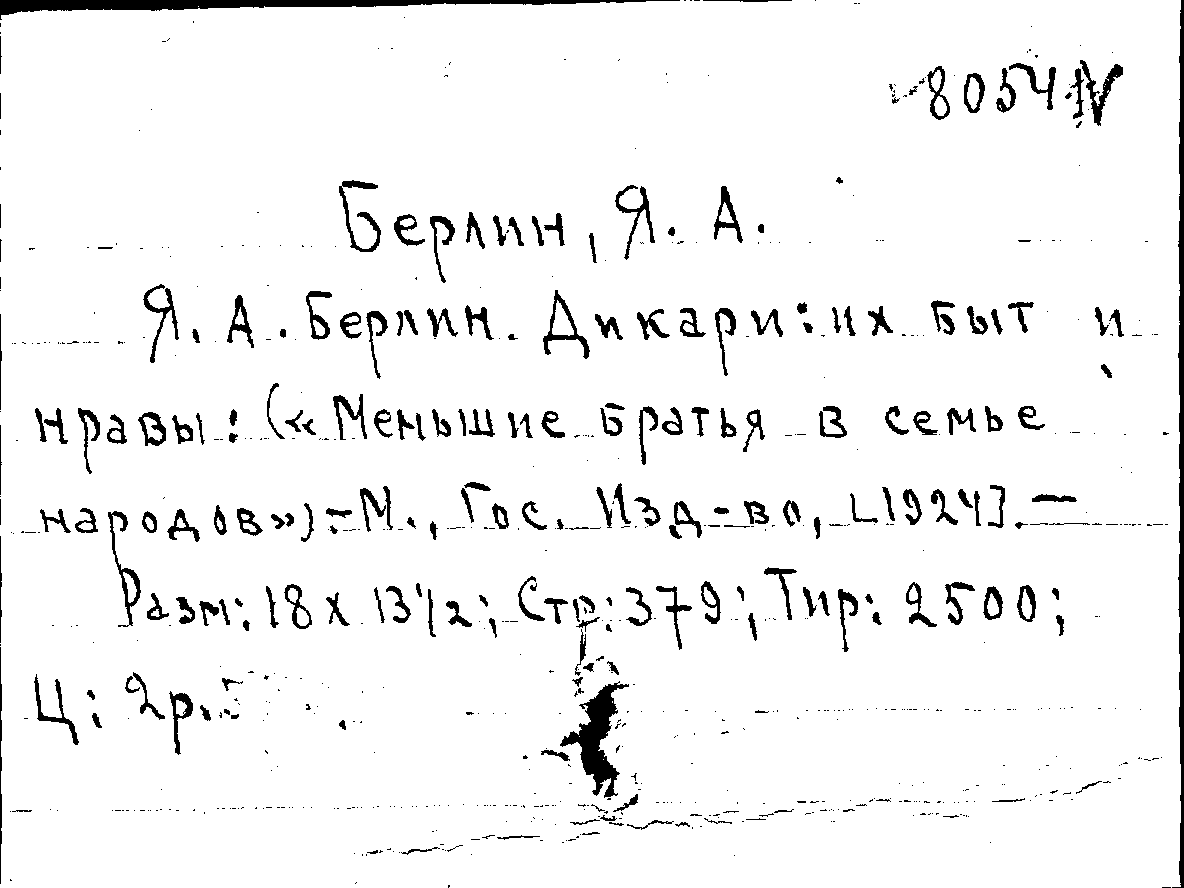 8054 IV
Берлин, Я. А.
Я. А. Берлин. Дикари: их быт и
нравы: («Меньшие братья в семье
народов»):-М., Гос. Изд-во, [1924].—
Разм: 18 х 13 1/2; Стр: 379; Тир: 2500;
Ц: 2р.